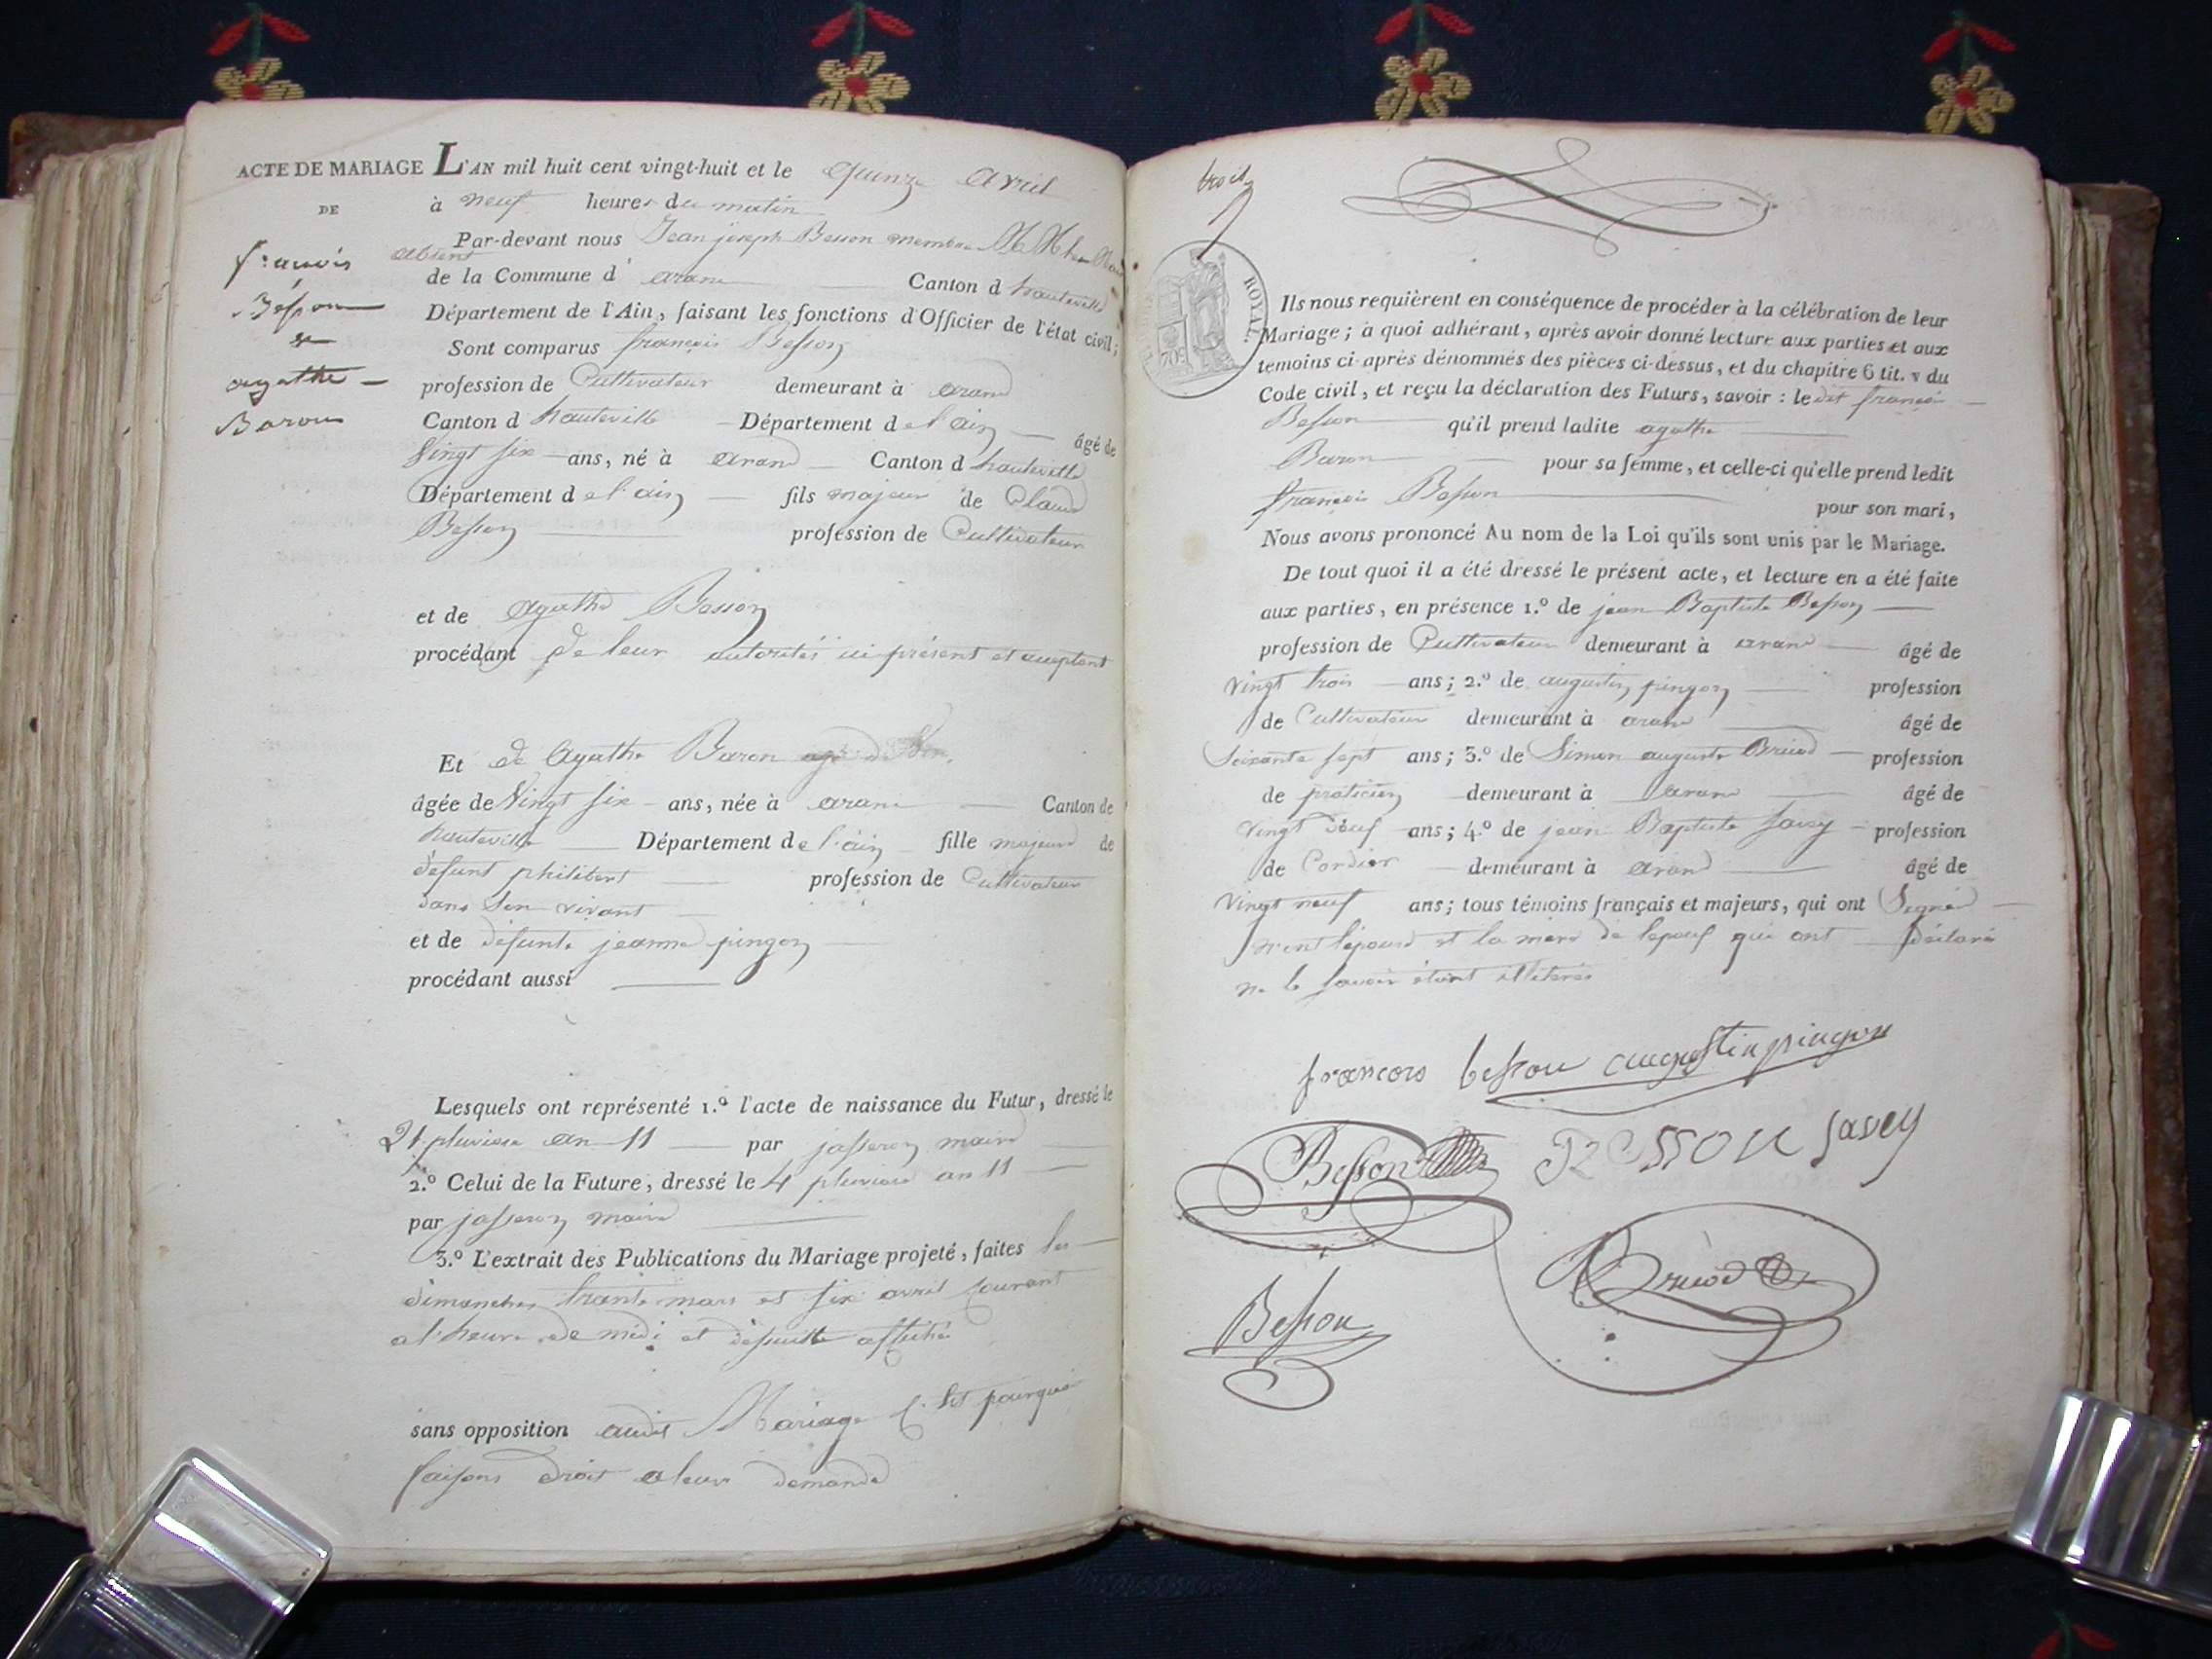 ACTE DE MARIAGE
DE
françois
Besson
et
agathe
Baron
L'AN mil huit cent vingt-huit et le quinze avril
à neuf heures du matin
Par-devant nous Jean joseph Besson membre
absent
de la Commune d' aran Canton d hauteville
Département de l'Ain, faisant les fonctions d'Officier de l'état civil;
Sont comparus françois Besson
profession de Cultivateur demeurant à arand
Canton d hauteville Département de l'ain âgé de
Vingt six ans, né à arand Canton d hauteville
Département de l'ain fils majeur de Claude
Besson profession de Cultivateur
et de agathe Besson
procédant de leur autorités ici présent et acceptant
Et de Agathe Baron
âgée de Vingt six ans, née à arand Canton de
hauteville Département de l'ain fille majeure de
defunt philibert profession de Cultivateur
dans son vivant
et de défunte jeanne pingon
procédant aussi
Lesquels ont représenté 1.º l'acte de naissance du Futur, dressé le
21 pluviose an 11 par jasseron maire
2.º Celui de la Future, dressé le 4 pluviose an 11
par jasseron maire
3.º L'extrait des Publications du Mariage projeté, faites les
dimanches trante mars et six avril courant
a l'heure de midi et desuitte affiché
sans opposition audit Mariage C'est pourquoi
faisons droit a leur demande
trois
ROYAL
Ils nous requièrent en conséquence de procéder à la célébration de leur
Mariage; à quoi adhérant, après avoir donné lecture aux parties et aux
temoins ci-après dénommés des pièces ci-dessus, et du chapitre 6 tit. v du
Code civil, et reçu la déclaration des Futurs, savoir : le dit françois
Besson qu'il prend ladite agathe
Baron pour sa femme, et celle-ci qu'elle prend ledit
françois Besson pour son mari,
Nous avons prononcé Au nom de la Loi qu'ils sont unis par le Mariage.
De tout quoi il a été dressé le présent acte, et lecture en a été faite
aux parties, en présence 1.º de jean Baptiste Besson
profession de Cultivateur demeurant à arand âgé de
Vingt trois ans; 2.º de augustin pingon profession
de Cultivateur demeurant à arand âgé de
Soixante sept ans; 3.º de Simon auguste Bruod profession
de praticien demeurant à arand âgé de
vingt neuf ans; 4.º de jean Baptiste Savey profession
de Cordier demeurant à arand âgé de
Vingt neuf ans; tous témoins français et majeurs, qui ont Signé
et la mere de l'epoux qui ont déclaré
ne le savoir étant illiterés
francois besson augustin pingon
Besson BESSON Savey
Besson Bruod